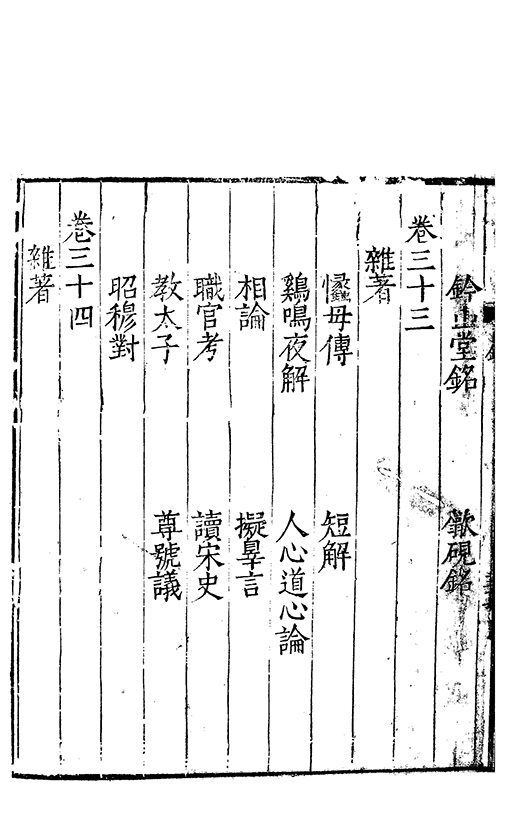 鈐山堂銘　歙硯銘
卷三十三
雜著
蠹母傳　短解
鷄鳴夜解　人心道心論
相論　擬辠言
職官考　讀宋史
教太子　尊號議
昭穆對
卷三十四
雜著